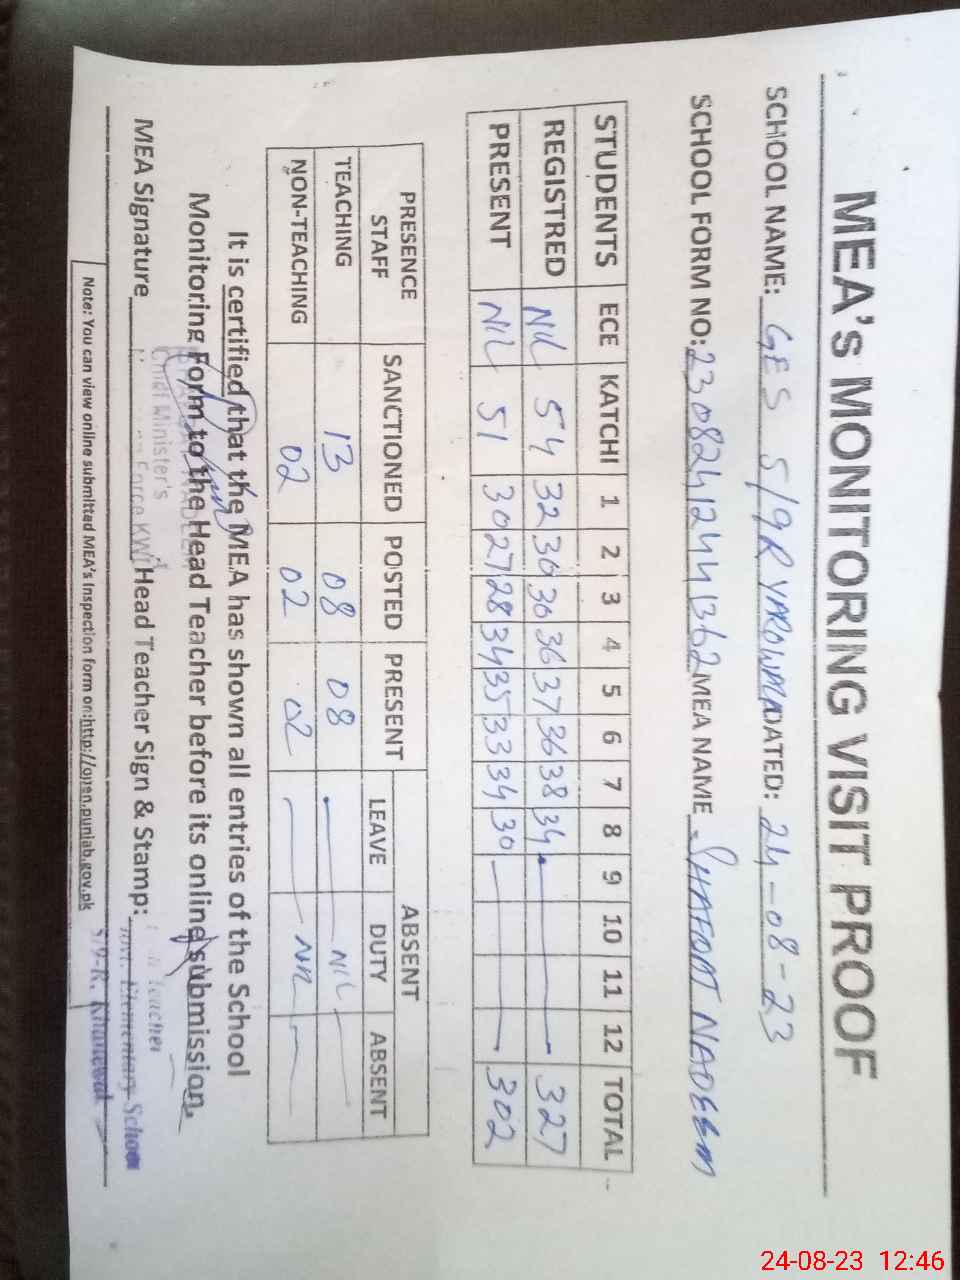 MEA'S MONITORING VISIT PROOF
SCHOOL NAME: GES 5/9R YAROWALA DATED: 24-08-23
SCHOOL FORM NO: 230824124441362 MEA NAME SHAFQAT NADEEM
STUDENTS ECE KATCHI 1 2 3 4 5 6 7 8 9 10 11 12 TOTAL
REGISTRED NIL 54 32 30 30 36 37 36 38 34 327
PRESENT NIL 51 30 27 28 34 35 33 34 30 302
PRESENCE STAFF SANCTIONED POSTED PRESENT ABSENT
LEAVE DUTY ABSENT
TEACHING 13 08 08 NIL
NON-TEACHING 02 02 02 NIL
It is certified that the MEA has shown all entries of the School
Monitoring Form to the Head Teacher before its online submission.
MEA Signature Head Teacher Sign & Stamp:
Chief Minister's
Force KWL
Teacher
Elementary School
5/9-R, Khanewal
Note: You can view online submitted MEA's Inspection form on:http://open.punjab.gov.pk
24-08-23 12:46